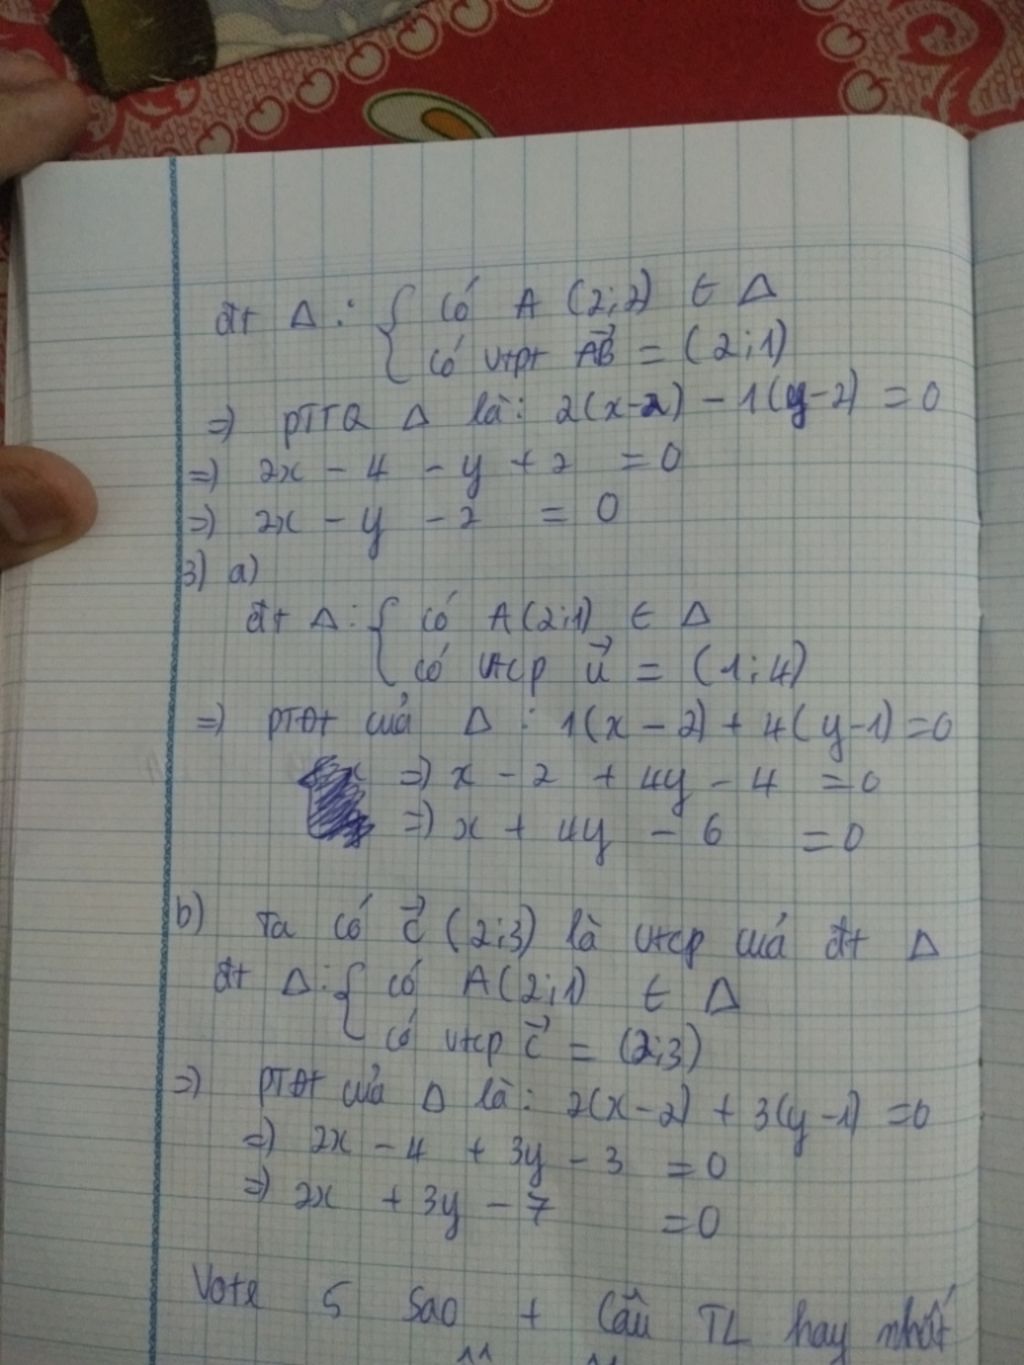 đt Δ : { có A (2;2) ∈ Δ
có vtpt AB⃗ = (2;1)
=) PTTQ Δ là: 2(x-2) - 1(y-2) = 0
=) 2x - 4 - y + 2 = 0
=) 2x - y - 2 = 0
3) a)
đt Δ : { có A(2;1) ∈ Δ
có vtcp u⃗ = (1;4)
=) PTĐt của Δ : 1(x - 2) + 4(y-1) = 0
=) x - 2 + 4y - 4 = 0
=) x + 4y - 6 = 0
b) Ta có c⃗ (2;3) là vtcp của đt Δ
đt Δ : { có A(2;1) ∈ Δ
có vtcp c⃗ = (2;3)
=) PTĐt của Δ là: 2(x-2) + 3(y-1) = 0
=) 2x - 4 + 3y - 3 = 0
=) 2x + 3y - 7 = 0
Vote 5 sao + Câu TL hay nhất